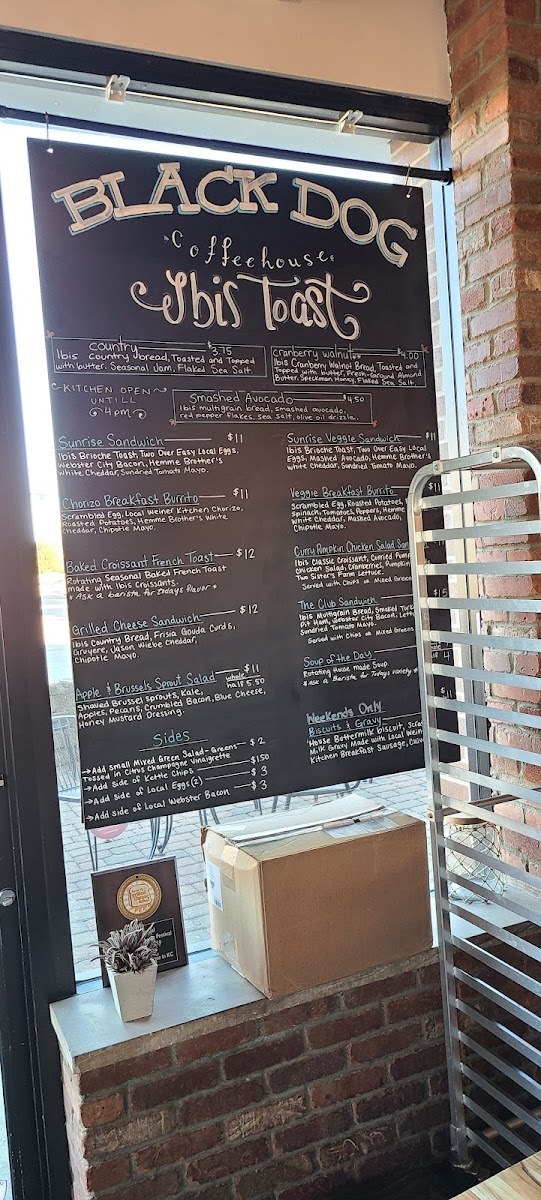 BLACK DOG
Coffeehouse
Ibis Toast
Country $3.75
Ibis country bread, Toasted and Topped
with butter, Seasonal Jam, Flaked Sea Salt.
Cranberry walnut $4.00
Ibis Cranberry Walnut Bread, Toasted and
Topped with butter, Fresh-Ground Almond
Butter, Speckman Honey, Flaked Sea Salt.
KITCHEN OPEN
UNTILL
4pm
Smashed Avocado $4.50
Ibis multigrain bread, smashed avocado,
red pepper flakes, sea salt, olive oil drizzle.
Sunrise Sandwich $11
Ibis Brioche Toast, Two Over Easy Local Eggs,
Webster City Bacon, Hemme Brother's
White Cheddar, Sundried Tomato Mayo.
Chorizo Breakfast Burrito $11
Scrambled Egg, Local Weiner Kitchen Chorizo,
Roasted Potatoes, Hemme Brother's White
Cheddar, Chipotle Mayo.
Baked Croissant French Toast $12
Rotating Seasonal Baked French Toast
made with Ibis Croissants.
* Ask a barista for todays flavor *
Grilled Cheese Sandwich $12
Ibis Country Bread, Frisia Gouda Curds,
Gruyere, Jason Wiebe Cheddar,
Chipotle Mayo.
Apple & Brussels Sprout Salad whole $11
half 5.50
Shaved Brussel sprouts, Kale,
Apples, Pecans, Crumbled Bacon, Blue Cheese,
Honey Mustard Dressing.
Sides
→Add Small Mixed Green Salad-Greens $2
Tossed in Citrus Champagne Vinaigrette
→Add side of Kettle Chips $150
→Add side of Local Eggs(2) $3
→Add side of Local Webster Bacon $3
Sunrise Veggie Sandwich $11
Ibis Brioche Toast, Two Over Easy Local
Eggs, Mashed Avocado, Hemme Brother's
White Cheddar, Sundried Tomato Mayo.
Veggie Breakfast Burrito $11
Scrambled Egg, Roasted Potatoes,
Spinach, Tomatoes, Peppers, Hemme
White Cheddar, Mashed Avocado,
Chipotle Mayo.
Curry Pumpkin Chicken Salad
Ibis Classic Croissant, Curried
Chicken Salad, Cranberries, Pumpkin
Two Sister's Farm Lettuce.
Served with Chips or Mixed Green
The Club Sandwich
Ibis Multigrain Bread, Smoked
Pit Ham, Webster City Bacon,
Sundried Tomato Mayo.
Served with Chips or Mixed Greens
Soup of the Day
Rotating House made Soup.
* Ask a Barista for Todays variety *
$11
Weekends Only
Biscuits & Gravy
House Buttermilk biscuit,
Milk Gravy Made with Local
Kitchen Breakfast Sausage,
Festival
in KC